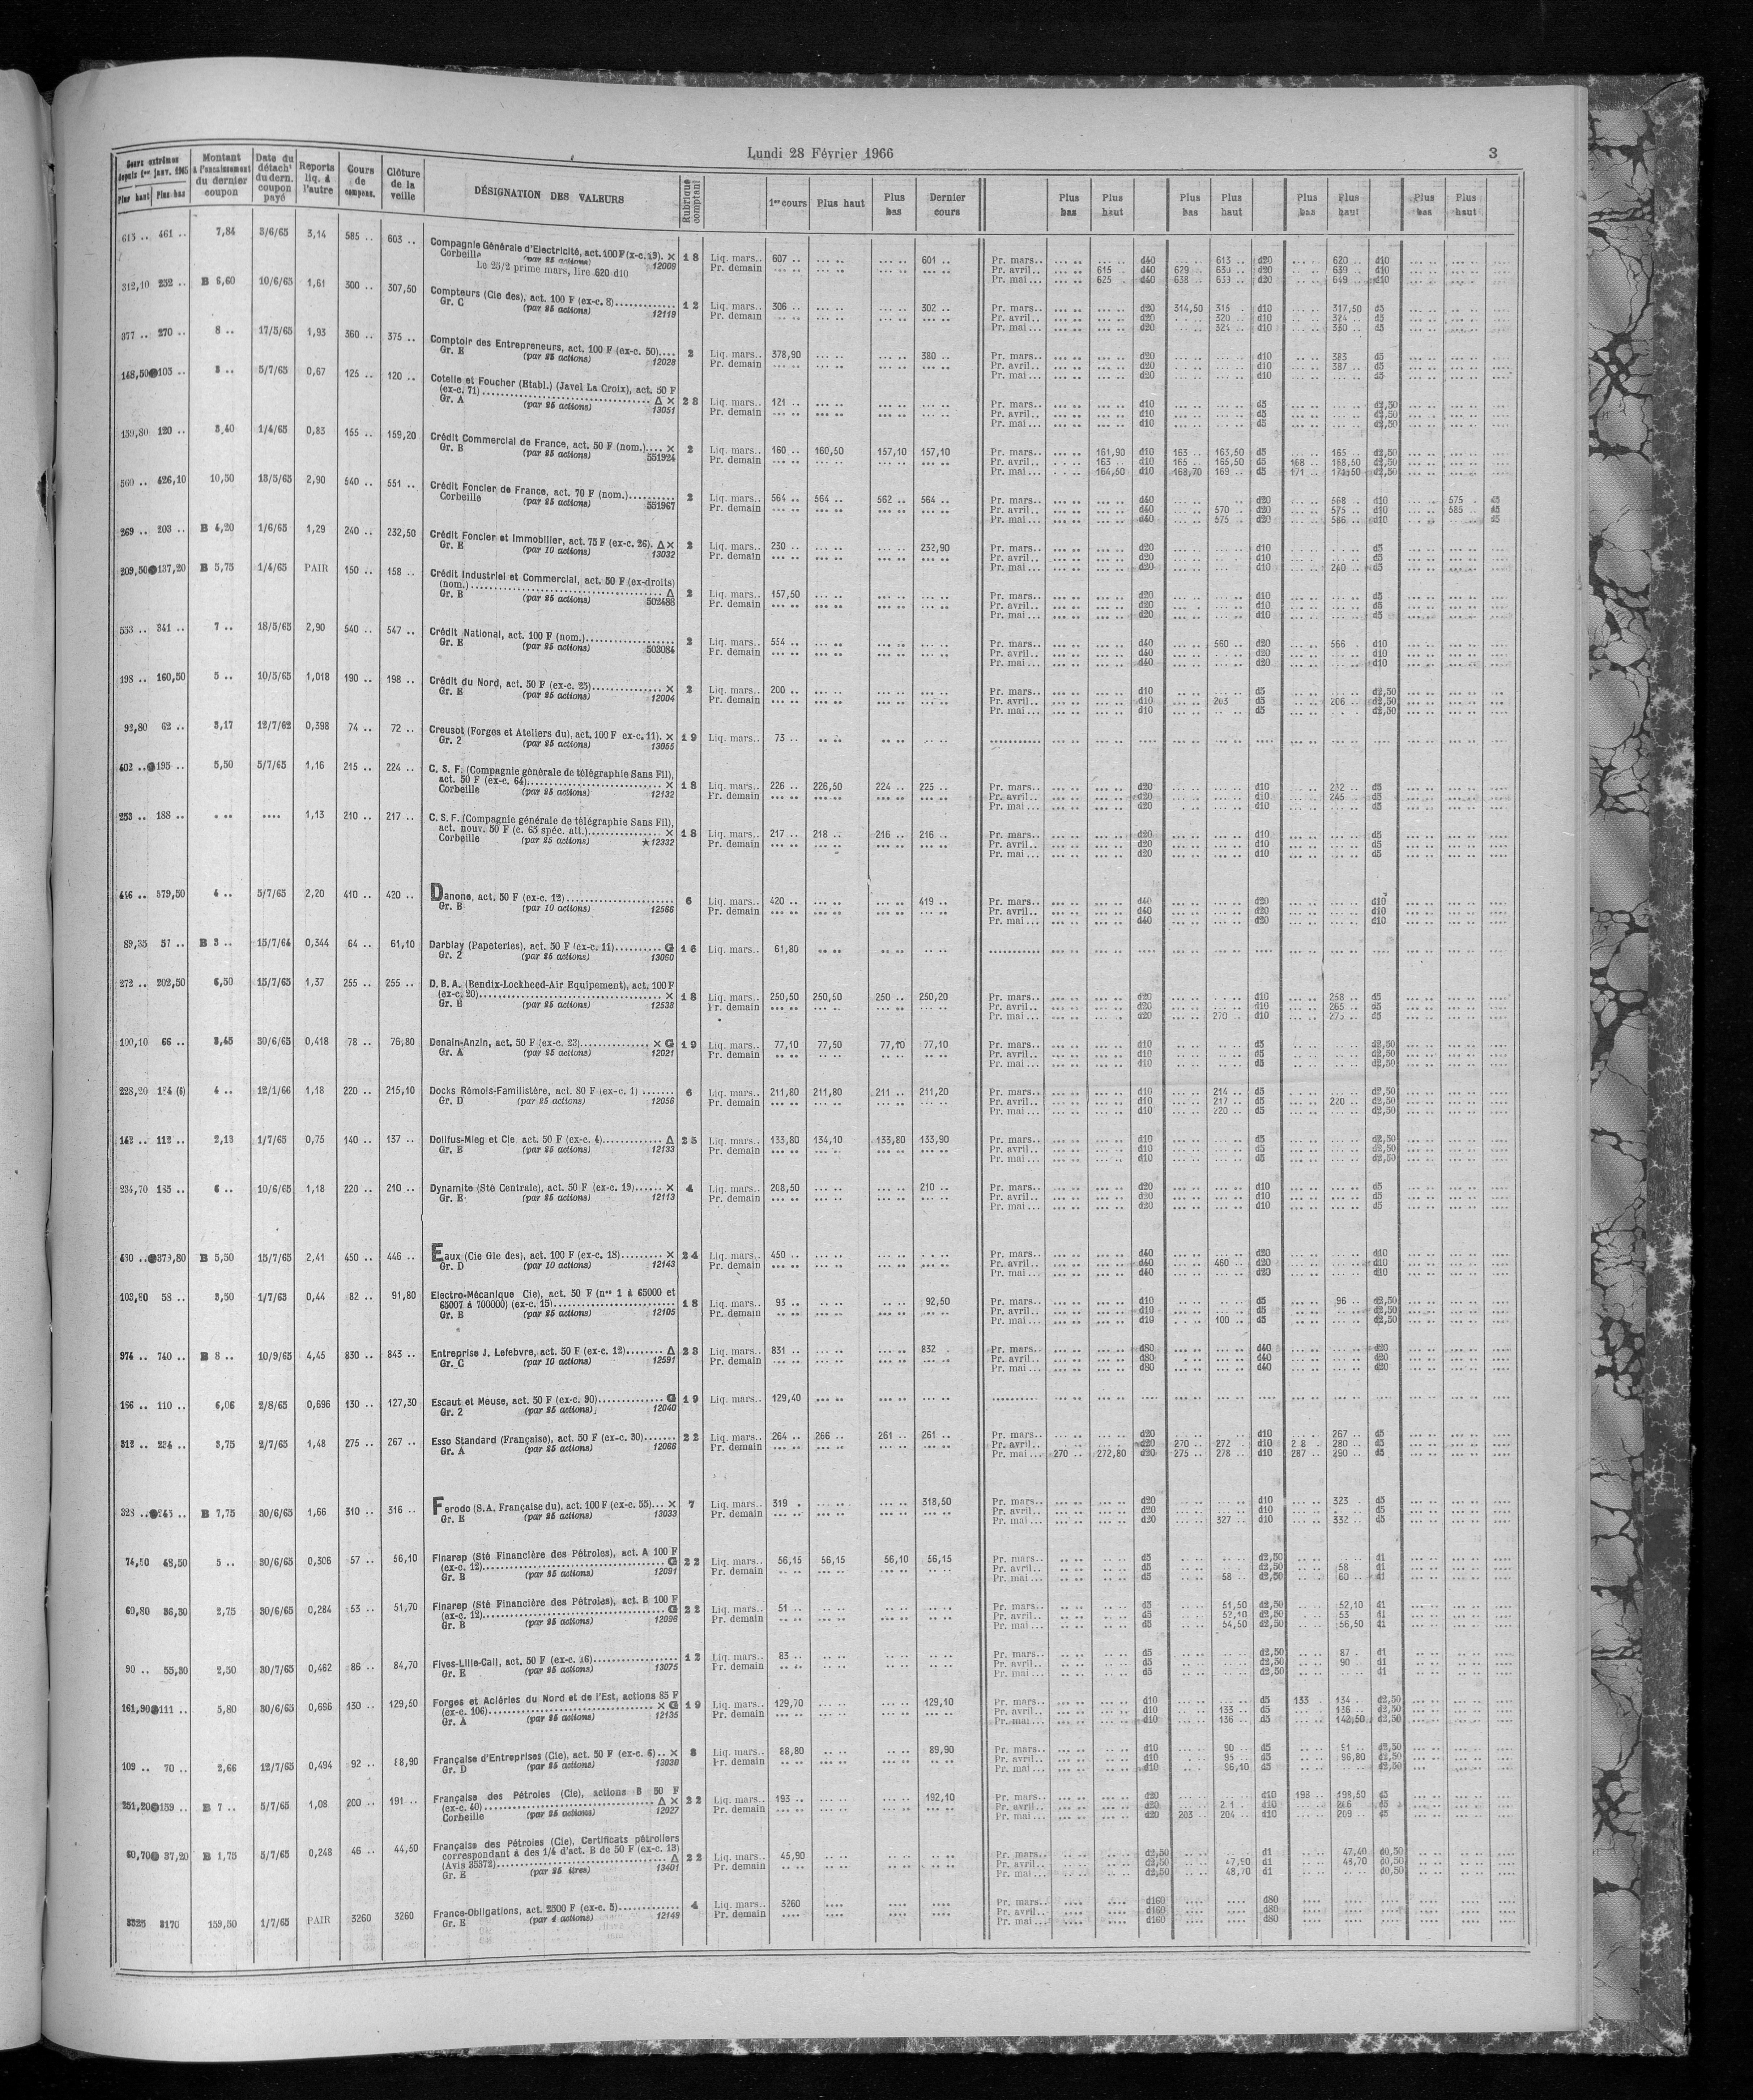 Lundi 28 Février 1966
3
Cours extrêmes depuis 1er janv. 1965 Plus haut Plus bas | Montant à l'encaissement du dernier coupon | Date du détach' du dern. coupon payé | Reports liq. à l'autre | Cours de compens. | Clôture de la veille | DÉSIGNATION DES VALEURS | Rubrique comptant | 1er cours | Plus haut | Plus bas | Dernier cours | Plus bas | Plus haut | Plus bas | Plus haut | Plus bas | Plus haut | Plus bas | Plus haut
613 .. 461 .. 7,84 3/6/65 3,14 585 .. 603 .. Compagnie Générale d'Electricité, act. 100 F (x-c. 19). X 18 Liq. mars.. 607 .. 601 .. Pr. mars.. d40 613 .. d20 620 .. d10
Corbeille (par 25 actions) 12009 Pr. demain Pr. avril.. 615 .. d40 629 .. 630 .. d20 639 .. d10
Le 25/2 prime mars, lire 620 d10 Pr. mai... 625 .. d40 638 .. 639 .. d20 649 .. d10
312,10 252 .. B 6,60 10/6/65 1,61 300 .. 307,50 Compteurs (Cie des), act. 100 F (ex-c. 8) 12 Liq. mars.. 306 .. 302 .. Pr. mars.. d20 314,50 315 .. d10 317,50 d5
Gr. C (par 25 actions) 12119 Pr. demain Pr. avril.. d20 320 .. d10 324 .. d5
Pr. mai... d20 324 .. d10 330 .. d5
377 .. 270 .. 8 .. 17/5/65 1,93 360 .. 375 .. Comptoir des Entrepreneurs, act. 100 F (ex-c. 50).... 2 Liq. mars.. 378,90 380 .. Pr. mars.. d20 d10 383 d5
Gr. E (par 25 actions) 12028 Pr. demain Pr. avril.. d20 d10 387 .. d5
Pr. mai... d20 d10 d5
148,50 103 .. 3 .. 5/7/65 0,67 125 .. 120 .. Cotelle et Foucher (Etabl.) (Javel La Croix), act. 50 F
(ex-c. 71) Δ X 28 Liq. mars.. 121 .. Pr. mars.. d10 d5 d2,50
Gr. A (par 25 actions) 13051 Pr. demain Pr. avril.. d10 d5 d2,50
Pr. mai... d10 d5 d2,50
159,80 120 .. 3,40 1/4/65 0,83 155 .. 159,20 Crédit Commercial de France, act. 50 F (nom.).... X 2 Liq. mars.. 160 .. 160,50 157,10 157,10 Pr. mars.. 161,90 d10 163 .. 163,50 d5 165 .. d2,50
Gr. B (par 25 actions) 551924 Pr. demain Pr. avril.. 163 .. d10 165 .. 165,50 d5 168 .. 168,50 d2,50
Pr. mai... 164,50 d10 168,70 169 .. d5 171 .. d2,50
560 .. 426,10 10,50 13/5/65 2,90 540 .. 551 .. Crédit Foncier de France, act. 70 F (nom.) 2 Liq. mars.. 564 .. 564 .. 562 .. 564 .. Pr. mars.. d40 d20 568 .. d10 575 .. d5
Corbeille (par 25 actions) 551967 Pr. demain Pr. avril.. d40 570 .. d20 575 .. d10 585 .. d5
Pr. mai... d40 575 .. d20 586 .. d10 d5
269 .. 203 .. B 4,20 1/6/65 1,29 240 .. 232,50 Crédit Foncier et Immobilier, act. 75 F (ex-c. 26). Δ X 2 Liq. mars.. 230 .. 232,90 Pr. mars.. d20 d10 d5
Gr. E (par 10 actions) 13032 Pr. demain Pr. avril.. d20 d10 d5
Pr. mai... d20 d10 240 .. d5
209,50 137,20 B 5,75 1/4/65 PAIR 150 .. 158 .. Crédit Industriel et Commercial, act. 50 F (ex-droits)
(nom.) Δ 2 Liq. mars.. 157,50 Pr. mars.. d20 d10 d5
Gr. B (par 25 actions) 502488 Pr. demain Pr. avril.. d20 d10 d5
Pr. mai... d20 d10 d5
553 .. 341 .. 7 .. 18/5/65 2,90 540 .. 547 .. Crédit National, act. 100 F (nom.) 2 Liq. mars.. 554 .. Pr. mars.. d40 560 .. d20 566 .. d10
Gr. E (par 25 actions) 503084 Pr. demain Pr. avril.. d40 d20 d10
Pr. mai... d40 d20 d10
198 .. 160,50 5 .. 10/5/65 1,018 190 .. 198 .. Crédit du Nord, act. 50 F (ex-c. 25) X 2 Liq. mars.. 200 .. Pr. mars.. d10 d5 d2,50
Gr. E (par 25 actions) 12004 Pr. demain Pr. avril.. d10 203 .. d5 206 .. d2,50
Pr. mai... d10 d5 d2,50
92,80 62 .. 3,17 12/7/62 0,398 74 .. 72 .. Creusot (Forges et Ateliers du), act. 100 F ex-c. 11). X 19 Liq. mars.. 73 ..
Gr. 2 (par 25 actions) 13055
402 .. 195 .. 5,50 5/7/65 1,16 215 .. 224 .. C. S. F. (Compagnie générale de télégraphie Sans Fil),
act. 50 F (ex-c. 64) X 18 Liq. mars.. 226 .. 226,50 224 .. 225 .. Pr. mars.. d20 d10 232 .. d5
Corbeille (par 25 actions) 12132 Pr. demain Pr. avril.. d20 d10 245 .. d5
Pr. mai... d20 d10 d5
253 .. 188 .. 1,13 210 .. 217 .. C. S. F. (Compagnie générale de télégraphie Sans Fil),
act. nouv. 50 F (c. 65 spéc. att.) X 18 Liq. mars.. 217 .. 218 .. 216 .. 216 .. Pr. mars.. d20 d10 d5
Corbeille (par 25 actions) ★12332 Pr. demain Pr. avril.. d20 d10 d5
Pr. mai... d20 d10 d5
446 .. 379,50 4 .. 5/7/65 2,20 410 .. 420 .. Danone, act. 50 F (ex-c. 12) 6 Liq. mars.. 420 .. 419 .. Pr. mars.. d40 d20 d10
Gr. B (par 10 actions) 12566 Pr. demain Pr. avril.. d40 d20 d10
Pr. mai... d40 d20 d10
89,35 51 .. B 3 .. 15/7/64 0,344 64 .. 61,10 Darblay (Papeteries), act. 50 F (ex-c. 11) G 16 Liq. mars.. 61,80
Gr. 2 (par 25 actions) 13050
272 .. 202,50 6,50 15/7/65 1,37 255 .. 255 .. D. B. A. (Bendix-Lockheed-Air Equipement), act. 100 F
(ex-c. 20) X 18 Liq. mars.. 250,50 250,50 250 .. 250,20 Pr. mars.. d20 d10 258 .. d5
Gr. B (par 25 actions) 12538 Pr. demain Pr. avril.. d20 d10 265 .. d5
Pr. mai... d20 270 .. d10 275 .. d5
100,10 66 .. 3,45 30/6/65 0,418 78 .. 76,80 Denain-Anzin, act. 50 F (ex-c. 23) X G 19 Liq. mars.. 77,10 77,50 77,10 77,10 Pr. mars.. d10 d5 d2,50
Gr. A (par 25 actions) 12021 Pr. demain Pr. avril.. d10 d5 d2,50
Pr. mai... d10 d5 d2,50
228,20 184 (6) 4 .. 12/1/66 1,18 220 .. 215,10 Docks Rémois-Familistère, act. 80 F (ex-c. 1) 6 Liq. mars.. 211,80 211,80 211 .. 211,20 Pr. mars.. d10 214 .. d5 d2,50
Gr. D (par 25 actions) 12056 Pr. demain Pr. avril.. d10 217 .. d5 220 .. d2,50
Pr. mai... d10 220 .. d5 d2,50
142 .. 112 .. 2,13 1/7/65 0,75 140 .. 137 .. Dollfus-Mieg et Cie act. 50 F (ex-c. 4) Δ 25 Liq. mars.. 133,80 134,10 133,80 133,90 Pr. mars.. d10 d5 d2,50
Gr. B (par 25 actions) 12133 Pr. demain Pr. avril.. d10 d5 d2,50
Pr. mai... d10 d5 d2,50
234,70 185 .. 6 .. 10/6/65 1,18 220 .. 210 .. Dynamite (Sté Centrale), act. 50 F (ex-c. 19) X 4 Liq. mars.. 208,50 210 .. Pr. mars.. d20 d10 d5
Gr. E (par 25 actions) 12113 Pr. demain Pr. avril.. d20 d10 d5
Pr. mai... d20 d10 d5
490 .. 379,80 B 5,50 15/7/65 2,41 450 .. 446 .. Eaux (Cie Gle des), act. 100 F (ex-c. 18) X 24 Liq. mars.. 450 .. Pr. mars.. d40 d20 d10
Gr. D (par 10 actions) 12143 Pr. demain Pr. avril.. d40 460 .. d20 d10
Pr. mai... d40 d20 d10
103,80 58 .. 3,50 1/7/63 0,44 82 .. 91,80 Electro-Mécanique Cie), act. 50 F (nos 1 à 65000 et
65007 à 700000) (ex-c. 15) 18 Liq. mars.. 93 .. 92,50 Pr. mars.. d10 d5 96 .. d2,50
Gr. B (par 25 actions) 12105 Pr. demain Pr. avril.. d10 d5 d2,50
Pr. mai... d10 100 .. d5 d2,50
974 .. 740 .. B 8 .. 10/9/65 4,45 830 .. 843 .. Entreprise J. Lefebvre, act. 50 F (ex-c. 12) Δ 23 Liq. mars.. 831 .. 832 .. Pr. mars.. d80 d40 d20
Gr. C (par 10 actions) 12591 Pr. demain Pr. avril.. d80 d40 d20
Pr. mai... d80 d40 d20
166 .. 110 .. 6,06 2/8/65 0,696 130 .. 127,30 Escaut et Meuse, act. 50 F (ex-c. 90) G 19 Liq. mars.. 129,40
Gr. 2 (par 25 actions) 12040
312 .. 234 .. 3,75 2/7/65 1,48 275 .. 267 .. Esso Standard (Française), act. 50 F (ex-c. 30) 22 Liq. mars.. 264 .. 266 .. 261 .. 261 .. Pr. mars.. d20 d10 267 .. d5
Gr. A (par 25 actions) 12066 Pr. demain Pr. avril.. d20 270 .. 272 .. d10 280 .. d5
Pr. mai... 270 .. 272,80 d20 275 .. 278 .. d10 287 .. 290 .. d5
323 .. 245 .. B 7,75 30/6/65 1,66 310 .. 316 .. Ferodo (S.A. Française du), act. 100 F (ex-c. 55)... X 7 Liq. mars.. 319 .. 318,50 Pr. mars.. d20 d10 323 .. d5
Gr. E (par 25 actions) 13033 Pr. demain Pr. avril.. d20 d10 d5
Pr. mai... d20 327 .. d10 332 .. d5
74,50 48,50 5 .. 30/6/65 0,306 57 .. 56,10 Finarep (Sté Financière des Pétroles), act. A 100 F
(ex-c. 12) G 22 Liq. mars.. 56,15 56,15 56,10 56,15 Pr. mars.. d5 d2,50 d1
Gr. B (par 25 actions) 12091 Pr. demain Pr. avril.. d5 d2,50 58 .. d1
Pr. mai... d5 58 .. d2,50 60 .. d1
60,80 36,30 2,75 30/6/65 0,284 53 .. 51,70 Finarep (Sté Financière des Pétroles), act. B 100 F
(ex-c. 12) G 22 Liq. mars.. 51 .. Pr. mars.. d5 51,50 d2,50 52,10 d1
Gr. B (par 25 actions) 12096 Pr. demain Pr. avril.. d5 52,10 d2,50 53 .. d1
Pr. mai... d5 54,50 d2,50 56,50 d1
90 .. 55,30 2,50 30/7/65 0,462 86 .. 84,70 Fives-Lille-Cail, act. 50 F (ex-c. 16) 12 Liq. mars.. 83 .. Pr. mars.. d5 d2,50 87 .. d1
Gr. E (par 25 actions) 13075 Pr. demain Pr. avril.. d5 d2,50 90 .. d1
Pr. mai... d5 d2,50 d1
161,90 111 .. 5,80 30/6/65 0,696 130 .. 129,50 Forges et Aciéries du Nord et de l'Est, actions 85 F
(ex-c. 106) X G 19 Liq. mars.. 129,70 129,10 Pr. mars.. d10 d5 133 .. 134 .. d2,50
Gr. A (par 25 actions) 12135 Pr. demain Pr. avril.. d10 133 .. d5 136 .. d2,50
Pr. mai... d10 136 .. d5 142,50 d2,50
109 .. 70 .. 2,66 12/7/65 0,494 92 .. 88,90 Française d'Entreprises (Cie), act. 50 F (ex-c. 6).. X 8 Liq. mars.. 88,80 89,90 Pr. mars.. d10 90 .. d5 91 .. d2,50
Gr. D (par 25 actions) 13030 Pr. demain Pr. avril.. d10 95 .. d5 96,80 d2,50
Pr. mai... d10 96,10 d5 d2,50
251,20 159 .. B 7 .. 5/7/65 1,08 200 .. 191 .. Française des Pétroles (Cie), actions B 50 F
(ex-c. 40) Δ X 22 Liq. mars.. 193 .. 192,10 Pr. mars.. d20 d10 198 .. 198,50 d5
Corbeille (par 25 actions) 12027 Pr. demain Pr. avril.. d20 d10 206 d5
Pr. mai... d20 203 .. 204 .. d10 209 .. d5
60,70 37,20 B 1,75 5/7/65 0,248 46 .. 44,50 Française des Pétroles (Cie), Certificats pétroliers
correspondant à des 1/4 d'act. B de 50 F (ex-c. 13)
(Avis 35372) Δ 22 Liq. mars.. 45,90 Pr. mars.. d2,50 d1 47,40 d0,50
Gr. E (par 25 titres) 13401 Pr. demain Pr. avril.. d2,50 47,90 d1 48,70 d0,50
Pr. mai... d2,50 48,70 d1 d0,50
3325 3170 159,50 1/7/65 PAIR 3260 3260 France-Obligations, act. 2500 F (ex-c. 5) 4 Liq. mars.. 3260 Pr. mars.. d160 d80
Gr. E (par 4 actions) 12149 Pr. demain Pr. avril.. d160 d80
Pr. mai... d160 d80